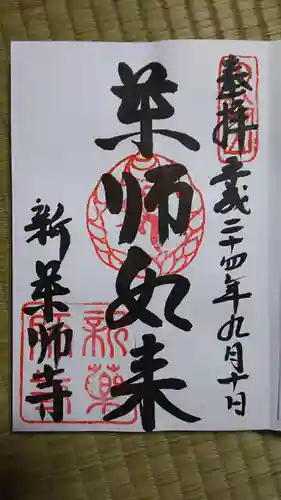 奉拝 平成二十四年九月十日
薬師如来
新薬師寺
新薬師寺